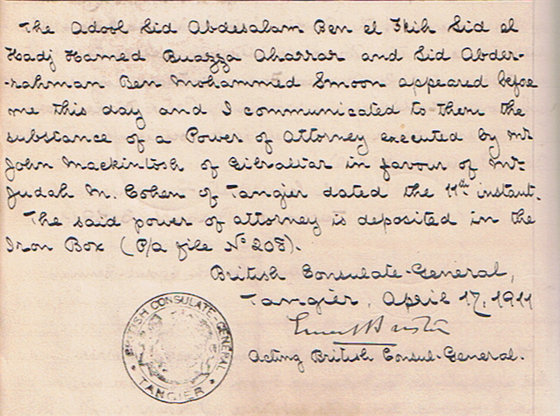 The Adool Sid Abdesalam Ben el Fkih Sid el
Hadj Hamed Buazza Aharrar and Sid Abder-
-rahman Ben Mohammed Smoon appeared before
me this day and I communicated to them the
substance of a Power of Attorney executed by Mr
John Mackintosh of Gibraltar in favour of Mr
Judah M. Cohen of Tangier dated the 11th instant.
The said power of attorney is deposited in the
Iron Box (P/a file No 208).
British Consulate-General,
Tangier, April 17, 1911
Acting British Consul-General.
BRITISH CONSULATE-GENERAL
TANGIER